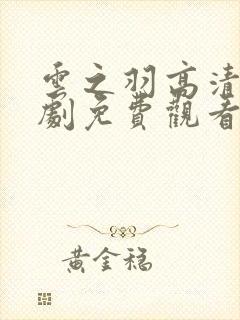 雲之羽高清
劇免費觀看
黃金稳